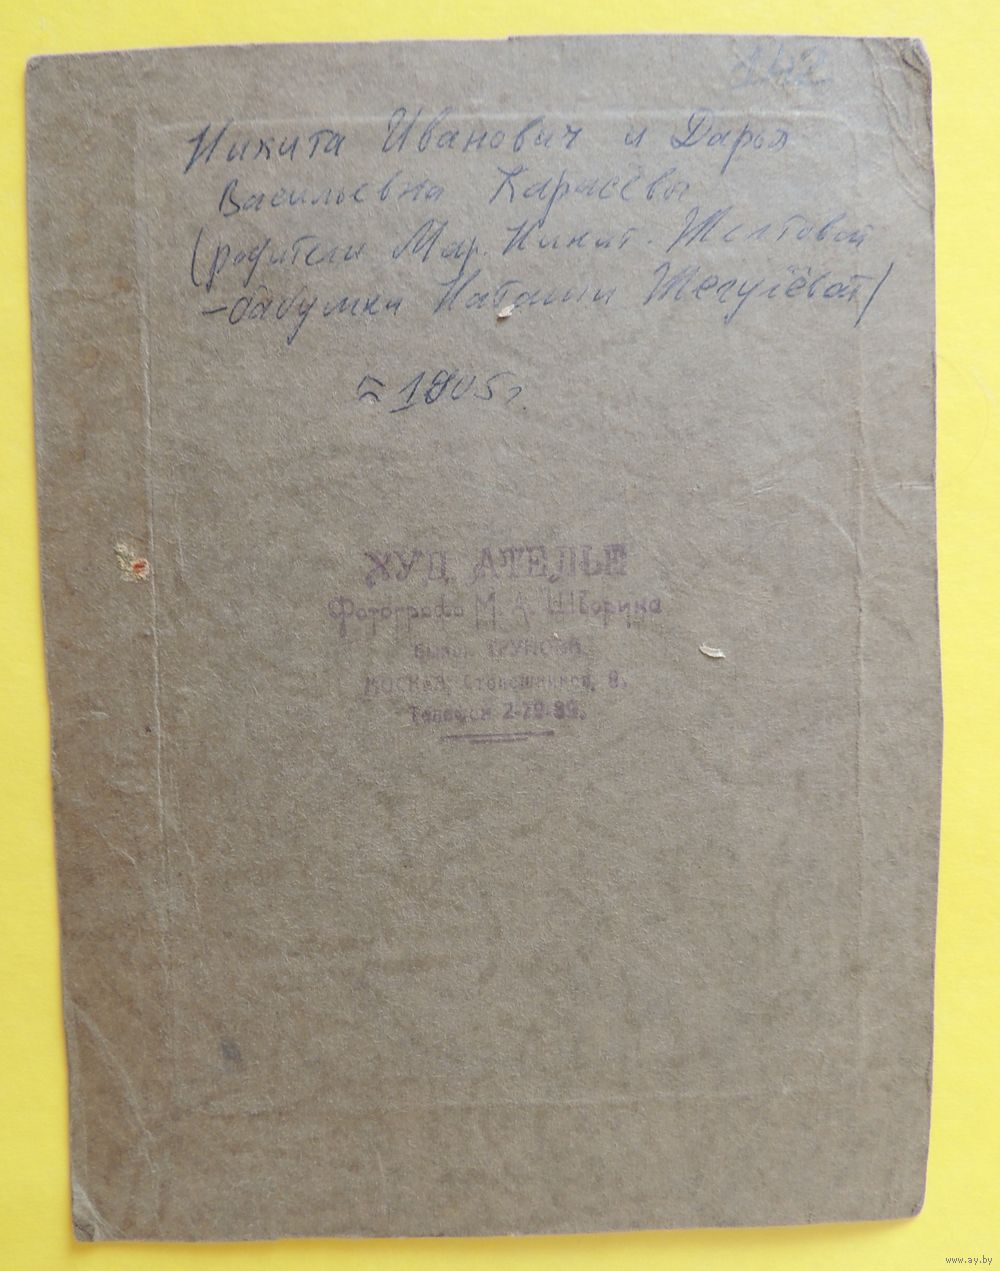 142
Никита Иванович и Дарья
Васильевна Карасёвы
(родители Мар. Никит. Желтовой
-бабушки Наташи Жегулёвой)
≈ 1905г.
ХУД. АТЕЛЬЕ
Фотографа М. А. Шворина
бывш. ТРУНОВА.
МОСКВА, Столешников, 9.
Телефон 2-79-89.
www.ay.by